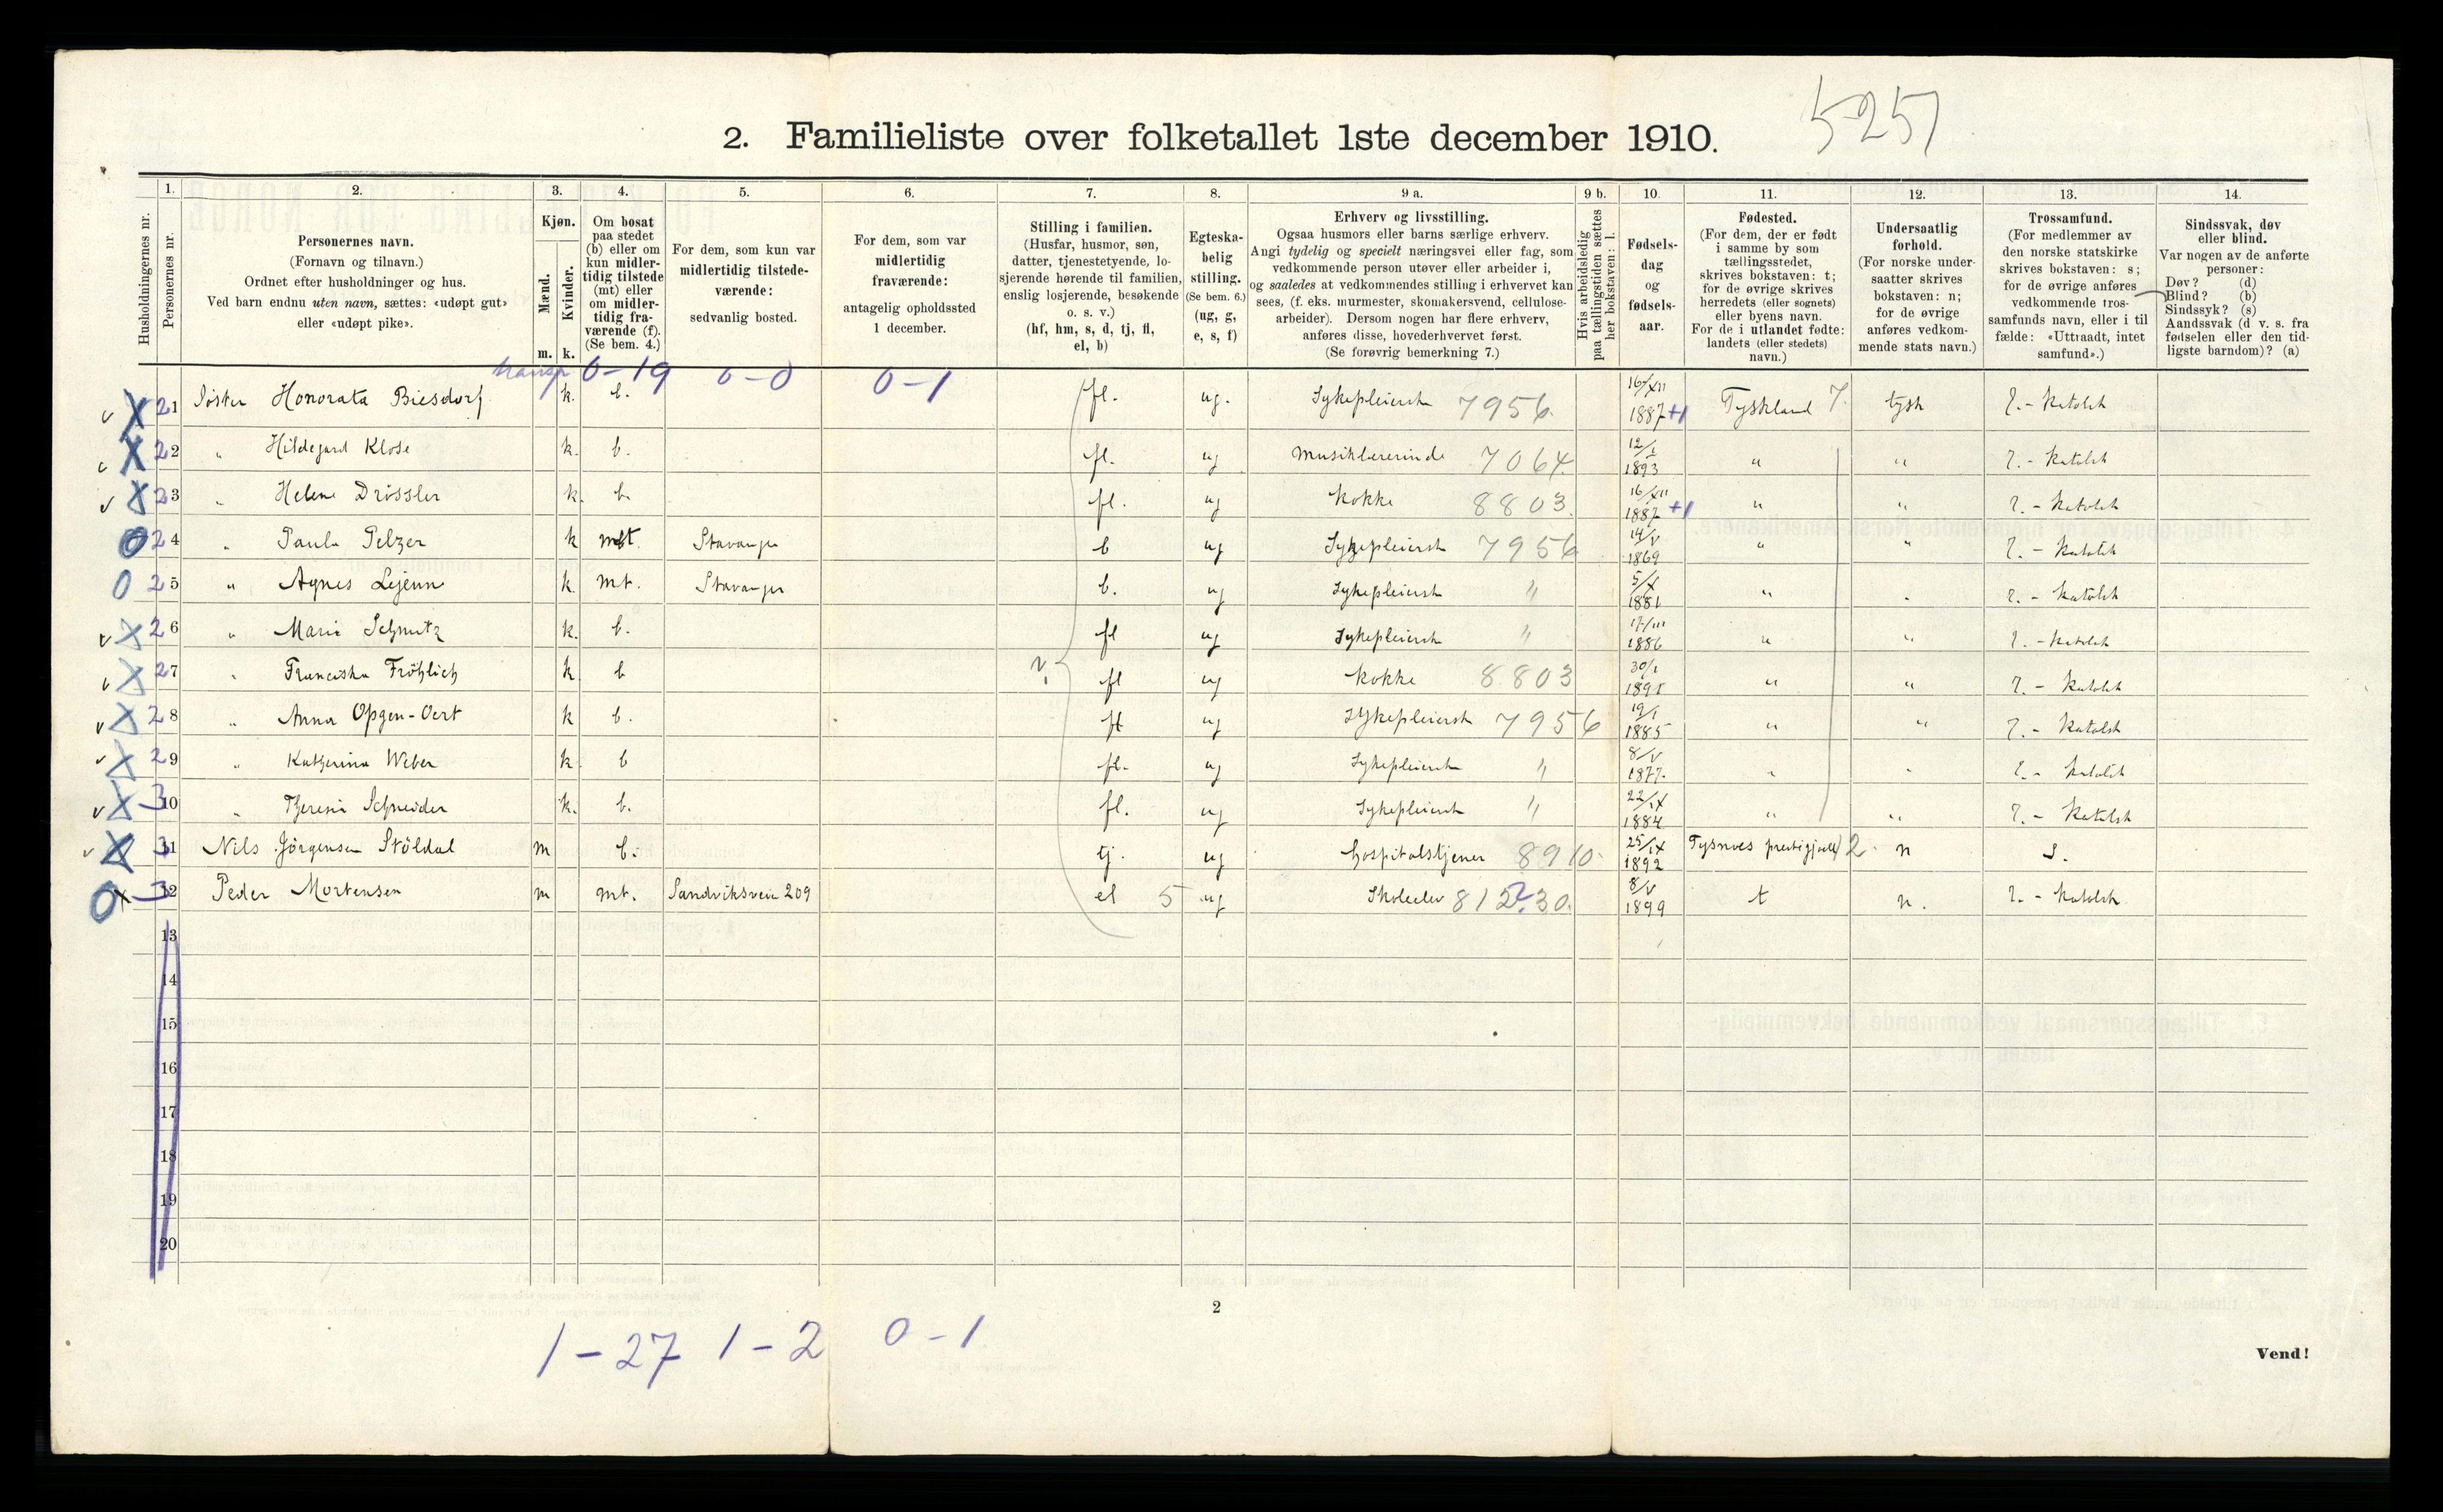 5251
2. Familieliste over folketallet 1ste december 1910.
1. 2. 3. 4. 5. 6. 7. 8. 9 a. 9 b. 10. 11. 12. 13. 14.
Husholdningernes nr.
Personernes nr.
Personernes navn.
(Fornavn og tilnavn.)
Ordnet efter husholdninger og hus.
Ved barn endnu uten navn, sættes: «udøpt gut»
eller «udøpt pike».
Kjøn.
Mænd.
Kvinder.
m. k.
Om bosat
paa stedet
(b) eller om
kun midler-
tidig tilstede
(mt) eller
om midler-
tidig fra-
værende (f).
(Se bem. 4.)
For dem, som kun var
midlertidig tilstede-
værende:
sedvanlig bosted.
For dem, som var
midlertidig
fraværende:
antagelig opholdssted
1 december.
Stilling i familien.
(Husfar, husmor, søn,
datter, tjenestetyende, lo-
sjerende hørende til familien,
enslig losjerende, besøkende
o. s. v.)
(hf, hm, s, d, tj, fl,
el, b)
Egteska-
belig
stilling.
(Se bem. 6.)
(ug, g,
e, s, f)
Erhverv og livsstilling.
Ogsaa husmors eller barns særlige erhverv.
Angi tydelig og specielt næringsvei eller fag, som
vedkommende person utøver eller arbeider i,
og saaledes at vedkommendes stilling i erhvervet kan
sees, (f. eks. murmester, skomakersvend, cellulose-
arbeider). Dersom nogen har flere erhverv,
anføres disse, hovederhvervet først.
(Se forøvrig bemerkning 7.)
Hvis arbeidsledig
paa tællingstiden sættes
her bokstaven: l.
Fødsels-
dag
og
fødsels-
aar.
Fødested.
(For dem, der er født
i samme by som
tællingsstedet,
skrives bokstaven: t;
for de øvrige skrives
herredets (eller sognets)
eller byens navn.
For de i utlandet fødte:
landets (eller stedets)
navn.)
Undersaatlig
forhold.
(For norske under-
saatter skrives
bokstaven: n;
for de øvrige
anføres vedkom-
mende stats navn.)
Trossamfund.
(For medlemmer av
den norske statskirke
skrives bokstaven: s;
for de øvrige anføres
vedkommende tros-
samfunds navn, eller i til
fælde: «Uttraadt, intet
samfund».)
Sindssvak, døv
eller blind.
Var nogen av de anførte
personer:
Døv? (d)
Blind? (b)
Sindssyk? (s)
Aandssvak (d v. s. fra
fødselen eller den tid-
ligste barndom)? (a)
transp 0-19 0-0 0-1
21 Söster Honorata Biesdorf k. b. fl. ug. Sykepleiersk 7956. 16/XII 1887 +1 Tyskland 7. tysk R.-Katolsk
22 " Hildegard Klose k. b. fl. ug Musiklærerinde 7064. 12/I 1893 " " R.-Katolsk
23 " Helene Drössler k. b. fl. ug Kokke 8803. 16/XII 1887 +1 " " R.-Katolsk
24 " Paula Pelzer k mt. Stavanger b ug Sykepleiersk 7956 14/V 1869 " " R.-Katolsk
25 " Agnes k. mt. Stavanger b. ug Sykepleiersk " 5/X 1881 " " R.-Katolsk
26 " Maria Schmitz k. b. fl ug Sykepleiersk " 17/III 1886 " " R.-Katolsk
27 " Franciska Fröhlich k b fl ug Kokke 8803 30/I 1891 " " R.-Katolsk
28 " Anna Opgen-Oert k b. fl ug Sykepleiersk 7956 19/I 1885 " " R.-Katolsk
29 " Katherina Weber k b fl. ug Sykepleiersk " 8/V 1877. " " R.-Katolsk
310 " Theresia Schneider k. b. fl. ug Sykepleiersk " 22/IX 1884 " " R.-Katolsk
311 Nils Jörgensen Stöldal m b. tj. ug Hospitalstjener 8910. 25/IX 1892 Tysnæs prestegjæld 2. n S.
312 Peder Mortensen m mt. Sandviksveien 209 el 5 ug Skoleelev 812.30. 8/V 1899 t n. R.-Katolsk
13
14
15
16
17
18
19
20
2
1-27 1-2 0-1
Vend!